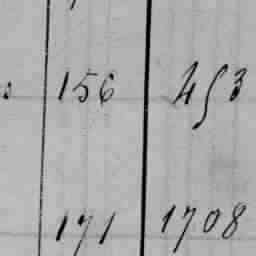 156 453
171 1708